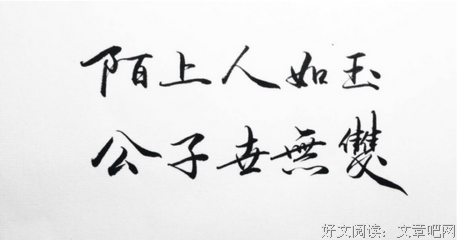 陌上人如玉
公子世無雙
好文阅读：文章吧网